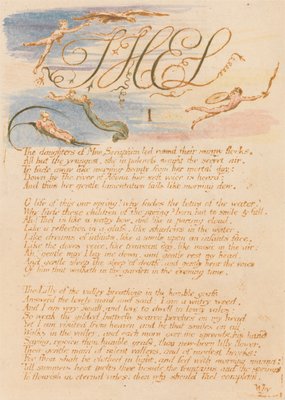 THEL
The daughters of Mne Seraphim led round their sunny flocks,
All but the youngest. she in paleness sought the secret air.
To fade away like morning beauty from her mortal day:
Down by the river of Adona her soft voice is heard:
And thus her gentle lamentation falls like morning dew.
O life of this our spring! why fades the lotus of the water?
Why fade these children of the spring? born but to smile & fall.
Ah! Thel is like a watry bow. and like a parting cloud.
Like a reflection in a glass. like shadows in the water.
Like dreams of infants. like a smile upon an infants face,
Like the doves voice, like transient day, like music in the air;
Ah! gentle may I lay me down, and gentle rest my head.
And gentle sleep the sleep of death. and gentle hear the voice
Of him that walketh in the garden in the evening time.
The Lilly of the valley breathing in the humble grass
Answer'd the lovely maid and said; I am a watry weed,
And I am very small, and love to dwell in lowly vales;
So weak, the gilded butterfly scarce perches on my head.
Yet I am visited from heaven and he that smiles on all.
Walks in the valley. and each morn over me spreads his hand
Saying, rejoice thou humble grass, thou new-born lilly flower,
Thou gentle maid of silent valleys. and of modest brooks;
For thou shalt be clothed in light, and fed with morning manna:
Till summers heat melts thee beside the fountains and the springs
To flourish in eternal vales: then why should Thel complain,
Why